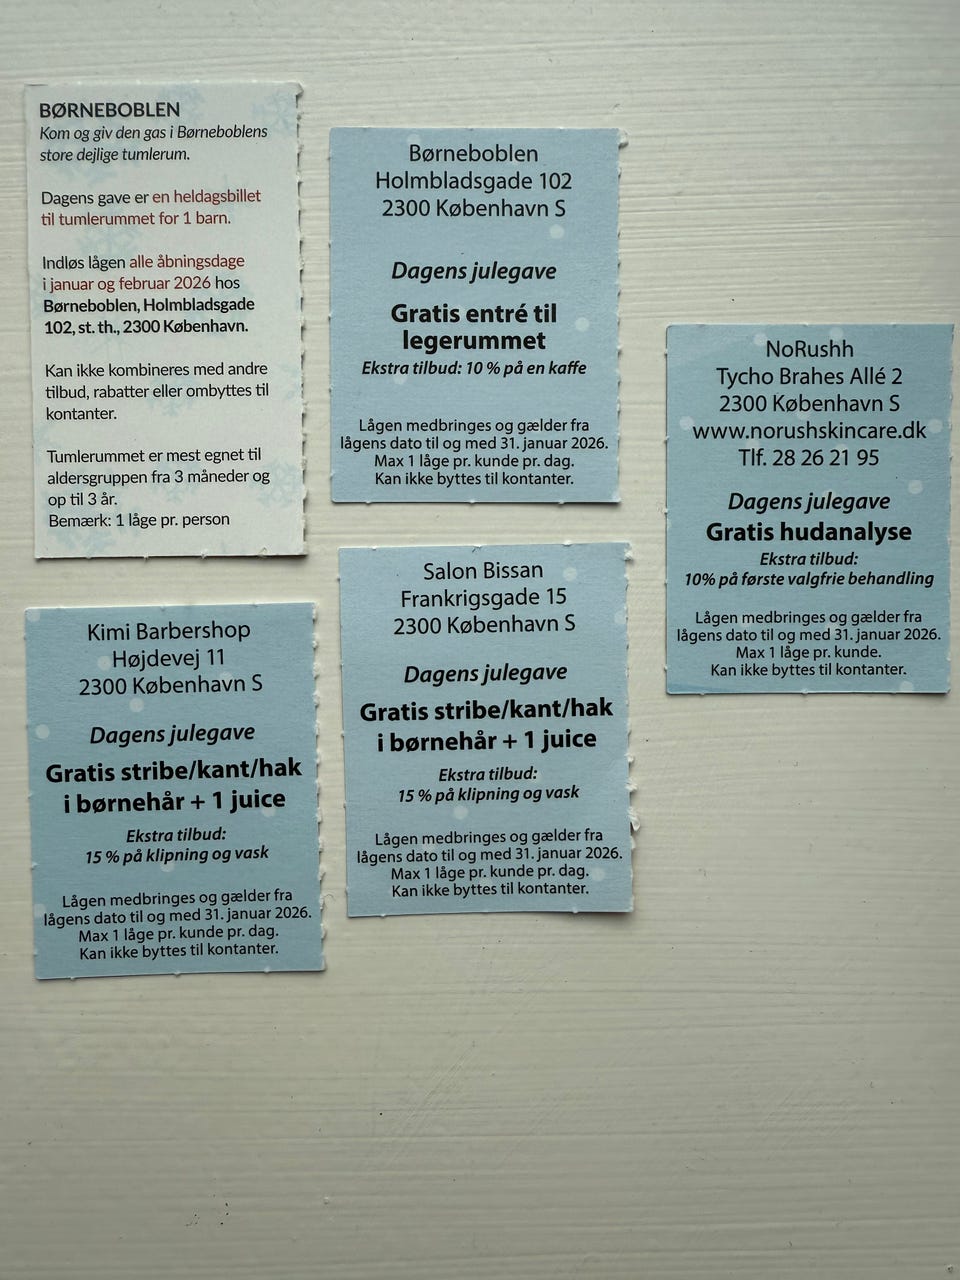 BØRNEBOBLEN
Kom og giv den gas i Børneboblens
store dejlige tumlerum.
Dagens gave er en heldagsbillet
til tumlerummet for 1 barn.
Indløs lågen alle åbningsdage
i januar og februar 2026 hos
Børneboblen, Holmbladsgade
102, st. th., 2300 København.
Kan ikke kombineres med andre
tilbud, rabatter eller ombyttes til
kontanter.
Tumlerummet er mest egnet til
aldersgruppen fra 3 måneder og
op til 3 år.
Bemærk: 1 låge pr. person
Børneboblen
Holmbladsgade 102
2300 København S
Dagens julegave
Gratis entré til
legerummet
Ekstra tilbud: 10 % på en kaffe
Lågen medbringes og gælder fra
lågens dato til og med 31. januar 2026.
Max 1 låge pr. kunde pr. dag.
Kan ikke byttes til kontanter.
NoRushh
Tycho Brahes Allé 2
2300 København S
www.norushskincare.dk
Tlf. 28 26 21 95
Dagens julegave
Gratis hudanalyse
Ekstra tilbud:
10% på første valgfrie behandling
Lågen medbringes og gælder fra
lågens dato til og med 31. januar 2026.
Max 1 låge pr. kunde.
Kan ikke byttes til kontanter.
Kimi Barbershop
Højdevej 11
2300 København S
Dagens julegave
Gratis stribe/kant/hak
i børnehår + 1 juice
Ekstra tilbud:
15 % på klipning og vask
Lågen medbringes og gælder fra
lågens dato til og med 31. januar 2026.
Max 1 låge pr. kunde pr. dag.
Kan ikke byttes til kontanter.
Salon Bissan
Frankrigsgade 15
2300 København S
Dagens julegave
Gratis stribe/kant/hak
i børnehår + 1 juice
Ekstra tilbud:
15 % på klipning og vask
Lågen medbringes og gælder fra
lågens dato til og med 31. januar 2026.
Max 1 låge pr. kunde pr. dag.
Kan ikke byttes til kontanter.